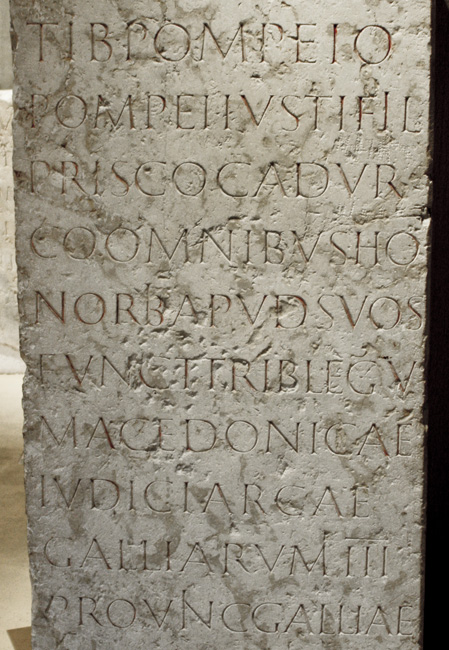 TIB POMPEIO
POMPEI IVSTI FIL
PRISCO CADVR
CO OMNIBVS HO
NORIB APVD SVOS
FVNCT TRIB LEG V
MACEDONICAE
IVDICI ARCAE
GALLIARVM III
PROVINC GALLIAE